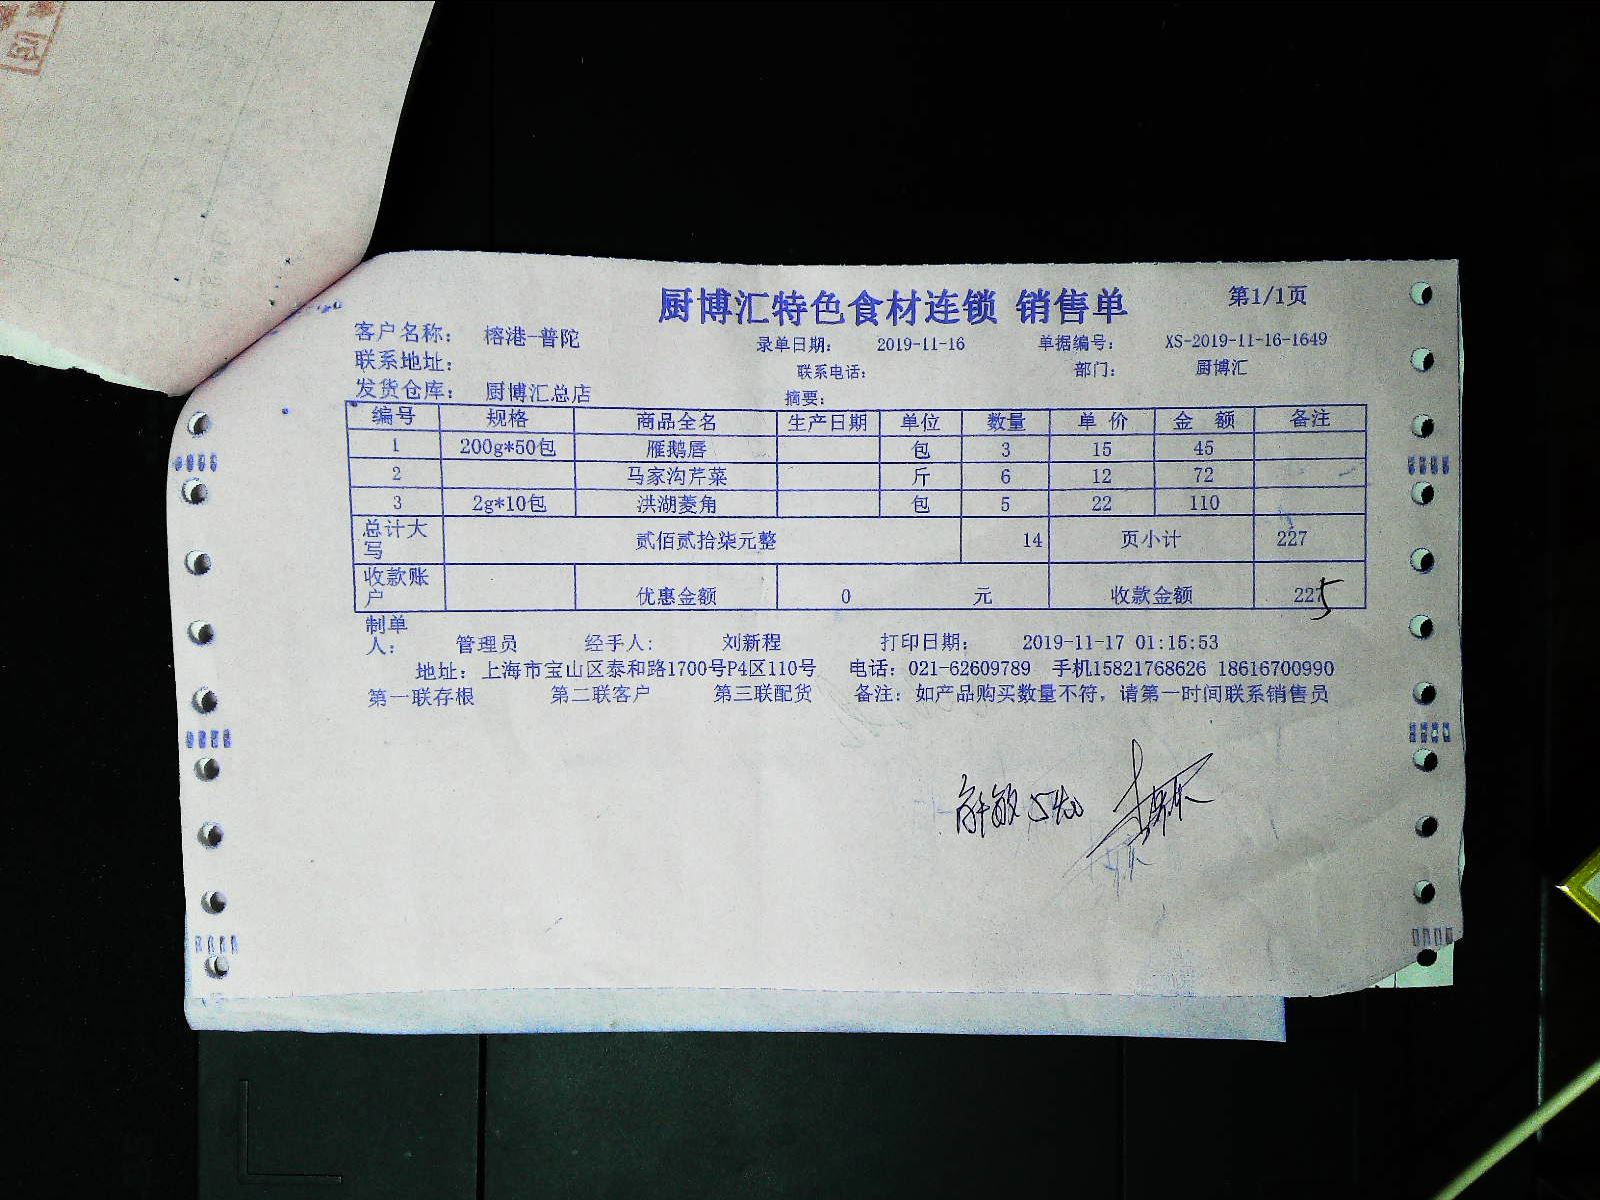 厨博汇特色食材连锁 销售单 第1/1页
客户名称： 榕港-普陀 录单日期： 2019-11-16 单据编号： XS-2019-11-16-1649
联系地址： 联系电话： 部门： 厨博汇
发货仓库： 厨博汇总店 摘要：
编号 规格 商品全名 生产日期 单位 数量 单价 金额 备注
1 200g*50包 雁鹅唇 包 3 15 45
2 马家沟芹菜 斤 6 12 72
3 2g*10包 洪湖菱角 包 5 22 110
总计大写 贰佰贰拾柒元整 14 页小计 227
收款账户 优惠金额 0 元 收款金额 225
制单人： 管理员 经手人： 刘新程 打印日期： 2019-11-17 01:15:53
地址：上海市宝山区泰和路1700号P4区110号 电话：021-62609789 手机15821768626 18616700990
第一联存根 第二联客户 第三联配货 备注：如产品购买数量不符，请第一时间联系销售员